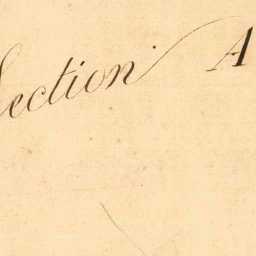 Section A